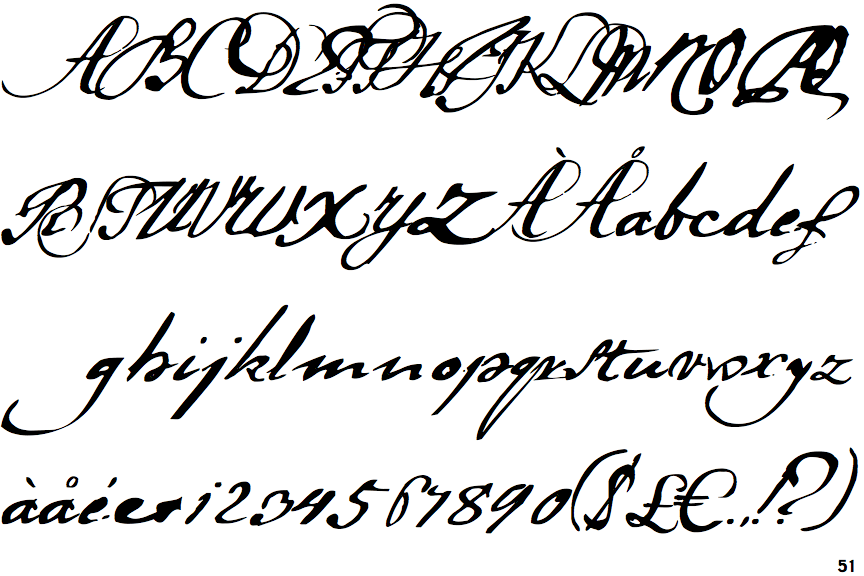 ABCDEFGHIJKLMNOPQ
RSTUVWXYZÀÅabcdef
ghijklmnopqrstuvwxyz
àåéer1234567890($£€.,!?)
51